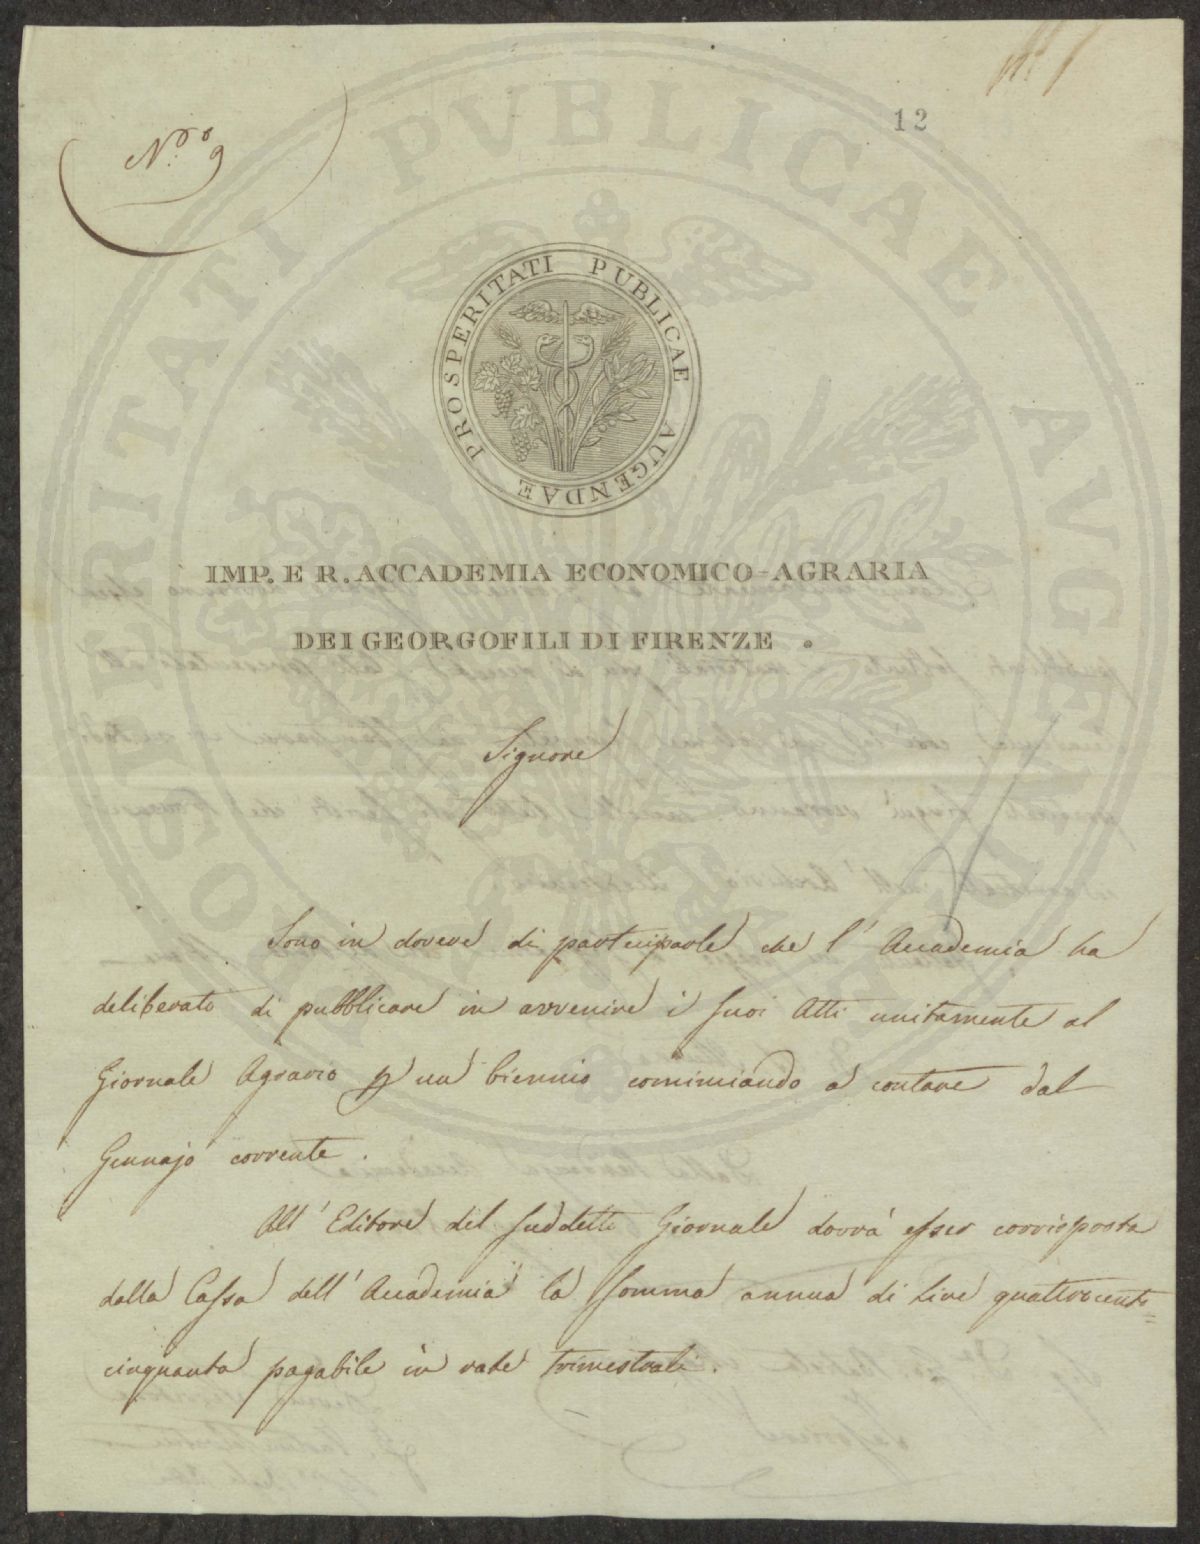 N.º 9
12
PROSPERITATI PUBLICAE AUGENDAE
IMP. E R. ACCADEMIA ECONOMICO-AGRARIA
DEI GEORGOFILI DI FIRENZE.
Signore
Sono in dovere di parteciparle che l'Accademia ha
deliberato di pubblicare in avvenire i suoi Atti unitamente al
Giornale Agrario p un biennio cominciando a contare dal
Gennajo corrente.
All'Editore del suddetto Giornale dovrà esser corrisposta
dalla Cassa dell'Accademia la somma annua di Lire quattrocento=
cinquanta pagabile in rate trimestrali.